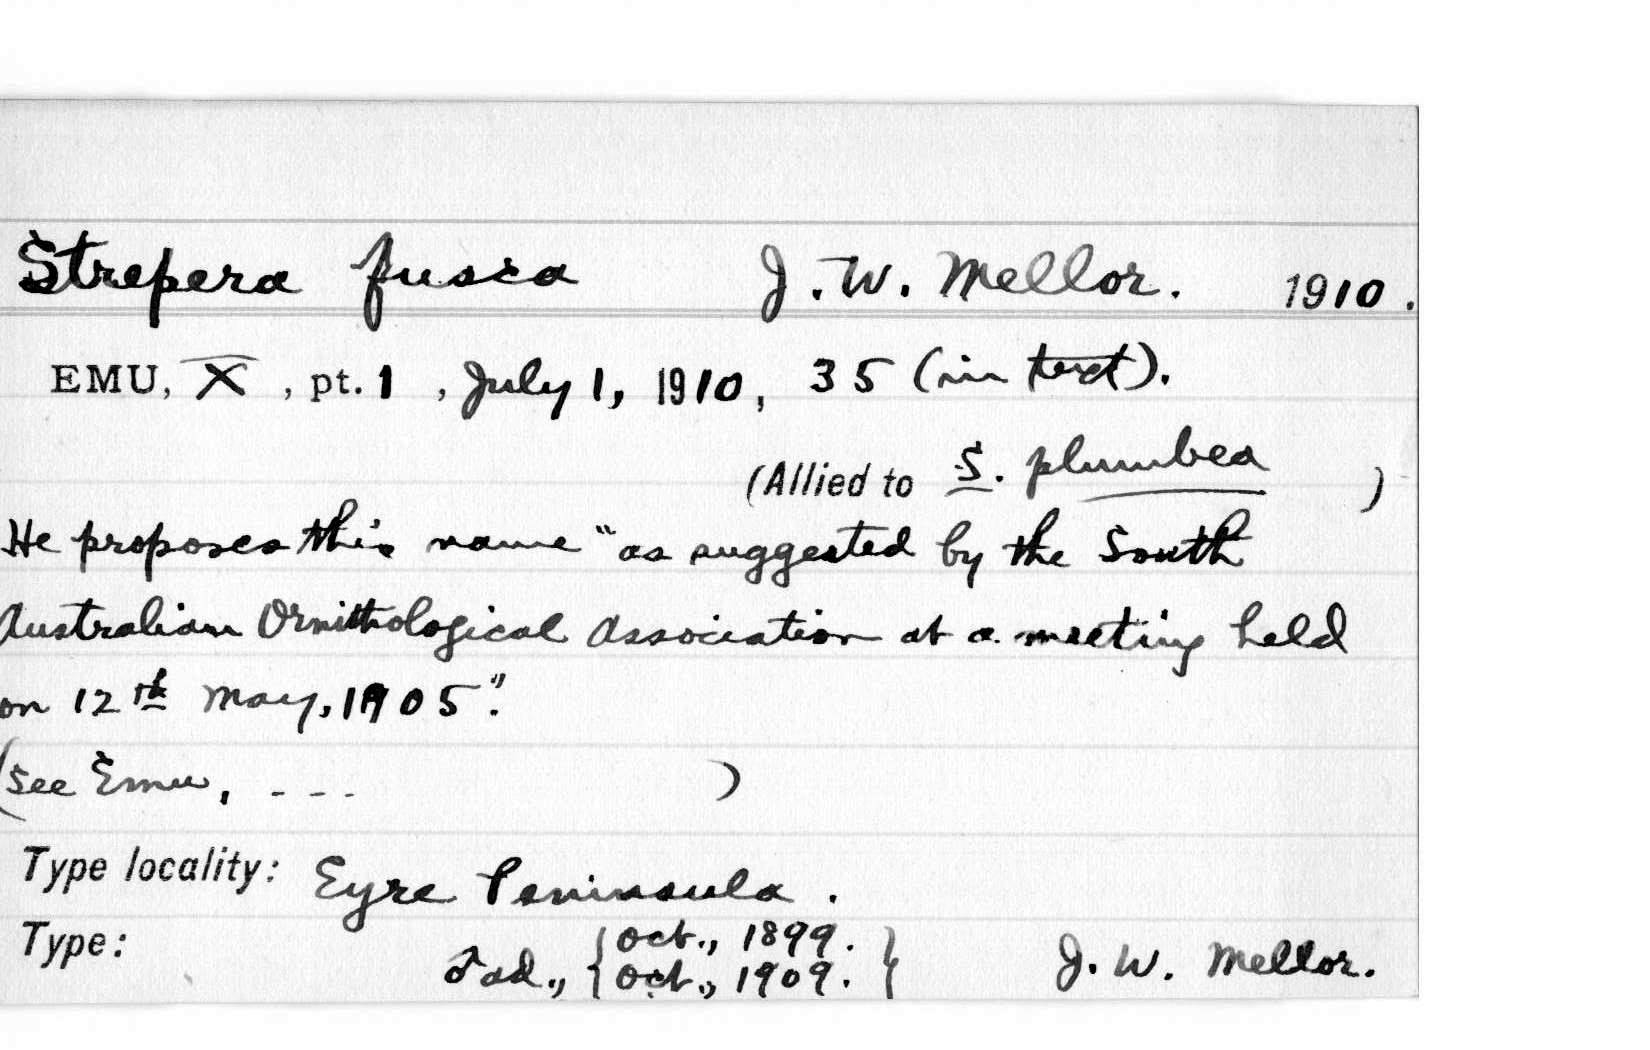 Strepera fusca J. W. Mellor. 1910.
EMU, X, pt. 1, July 1, 1910, 35 (in text).
(Allied to S. plumbea )
He proposes this name "as suggested by the South
Australian Ornithological Association at a meeting held
on 12th May, 1905".
(See Emu, - - - )
Type locality: Eyre Peninsula.
Type: ♂ ad., { Oct., 1899. }
{ Oct., 1909. } J. W. Mellor.